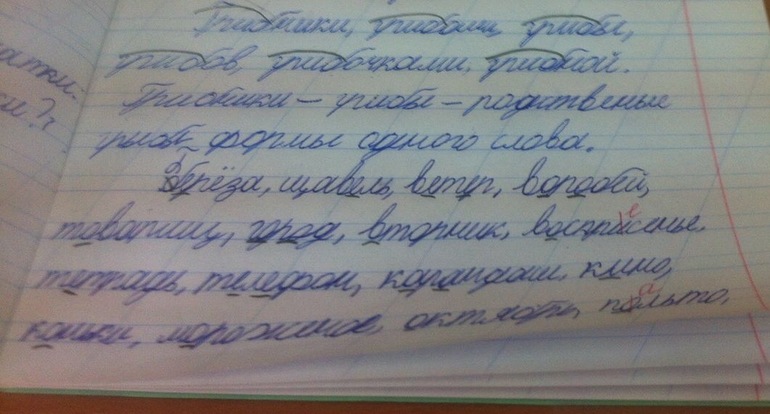 Грибники, грибами, грибы,
грибов, грибочками, грибной.
Грибники – грибы – родственые
гриб – формы одного слова.
Берёза, щавель, ветер, воробей,
товарищ, город, вторник, воскресенье.
тетрадь, телефон, карандаш, кино,
коньки, мороженое, октябрь, пальто,